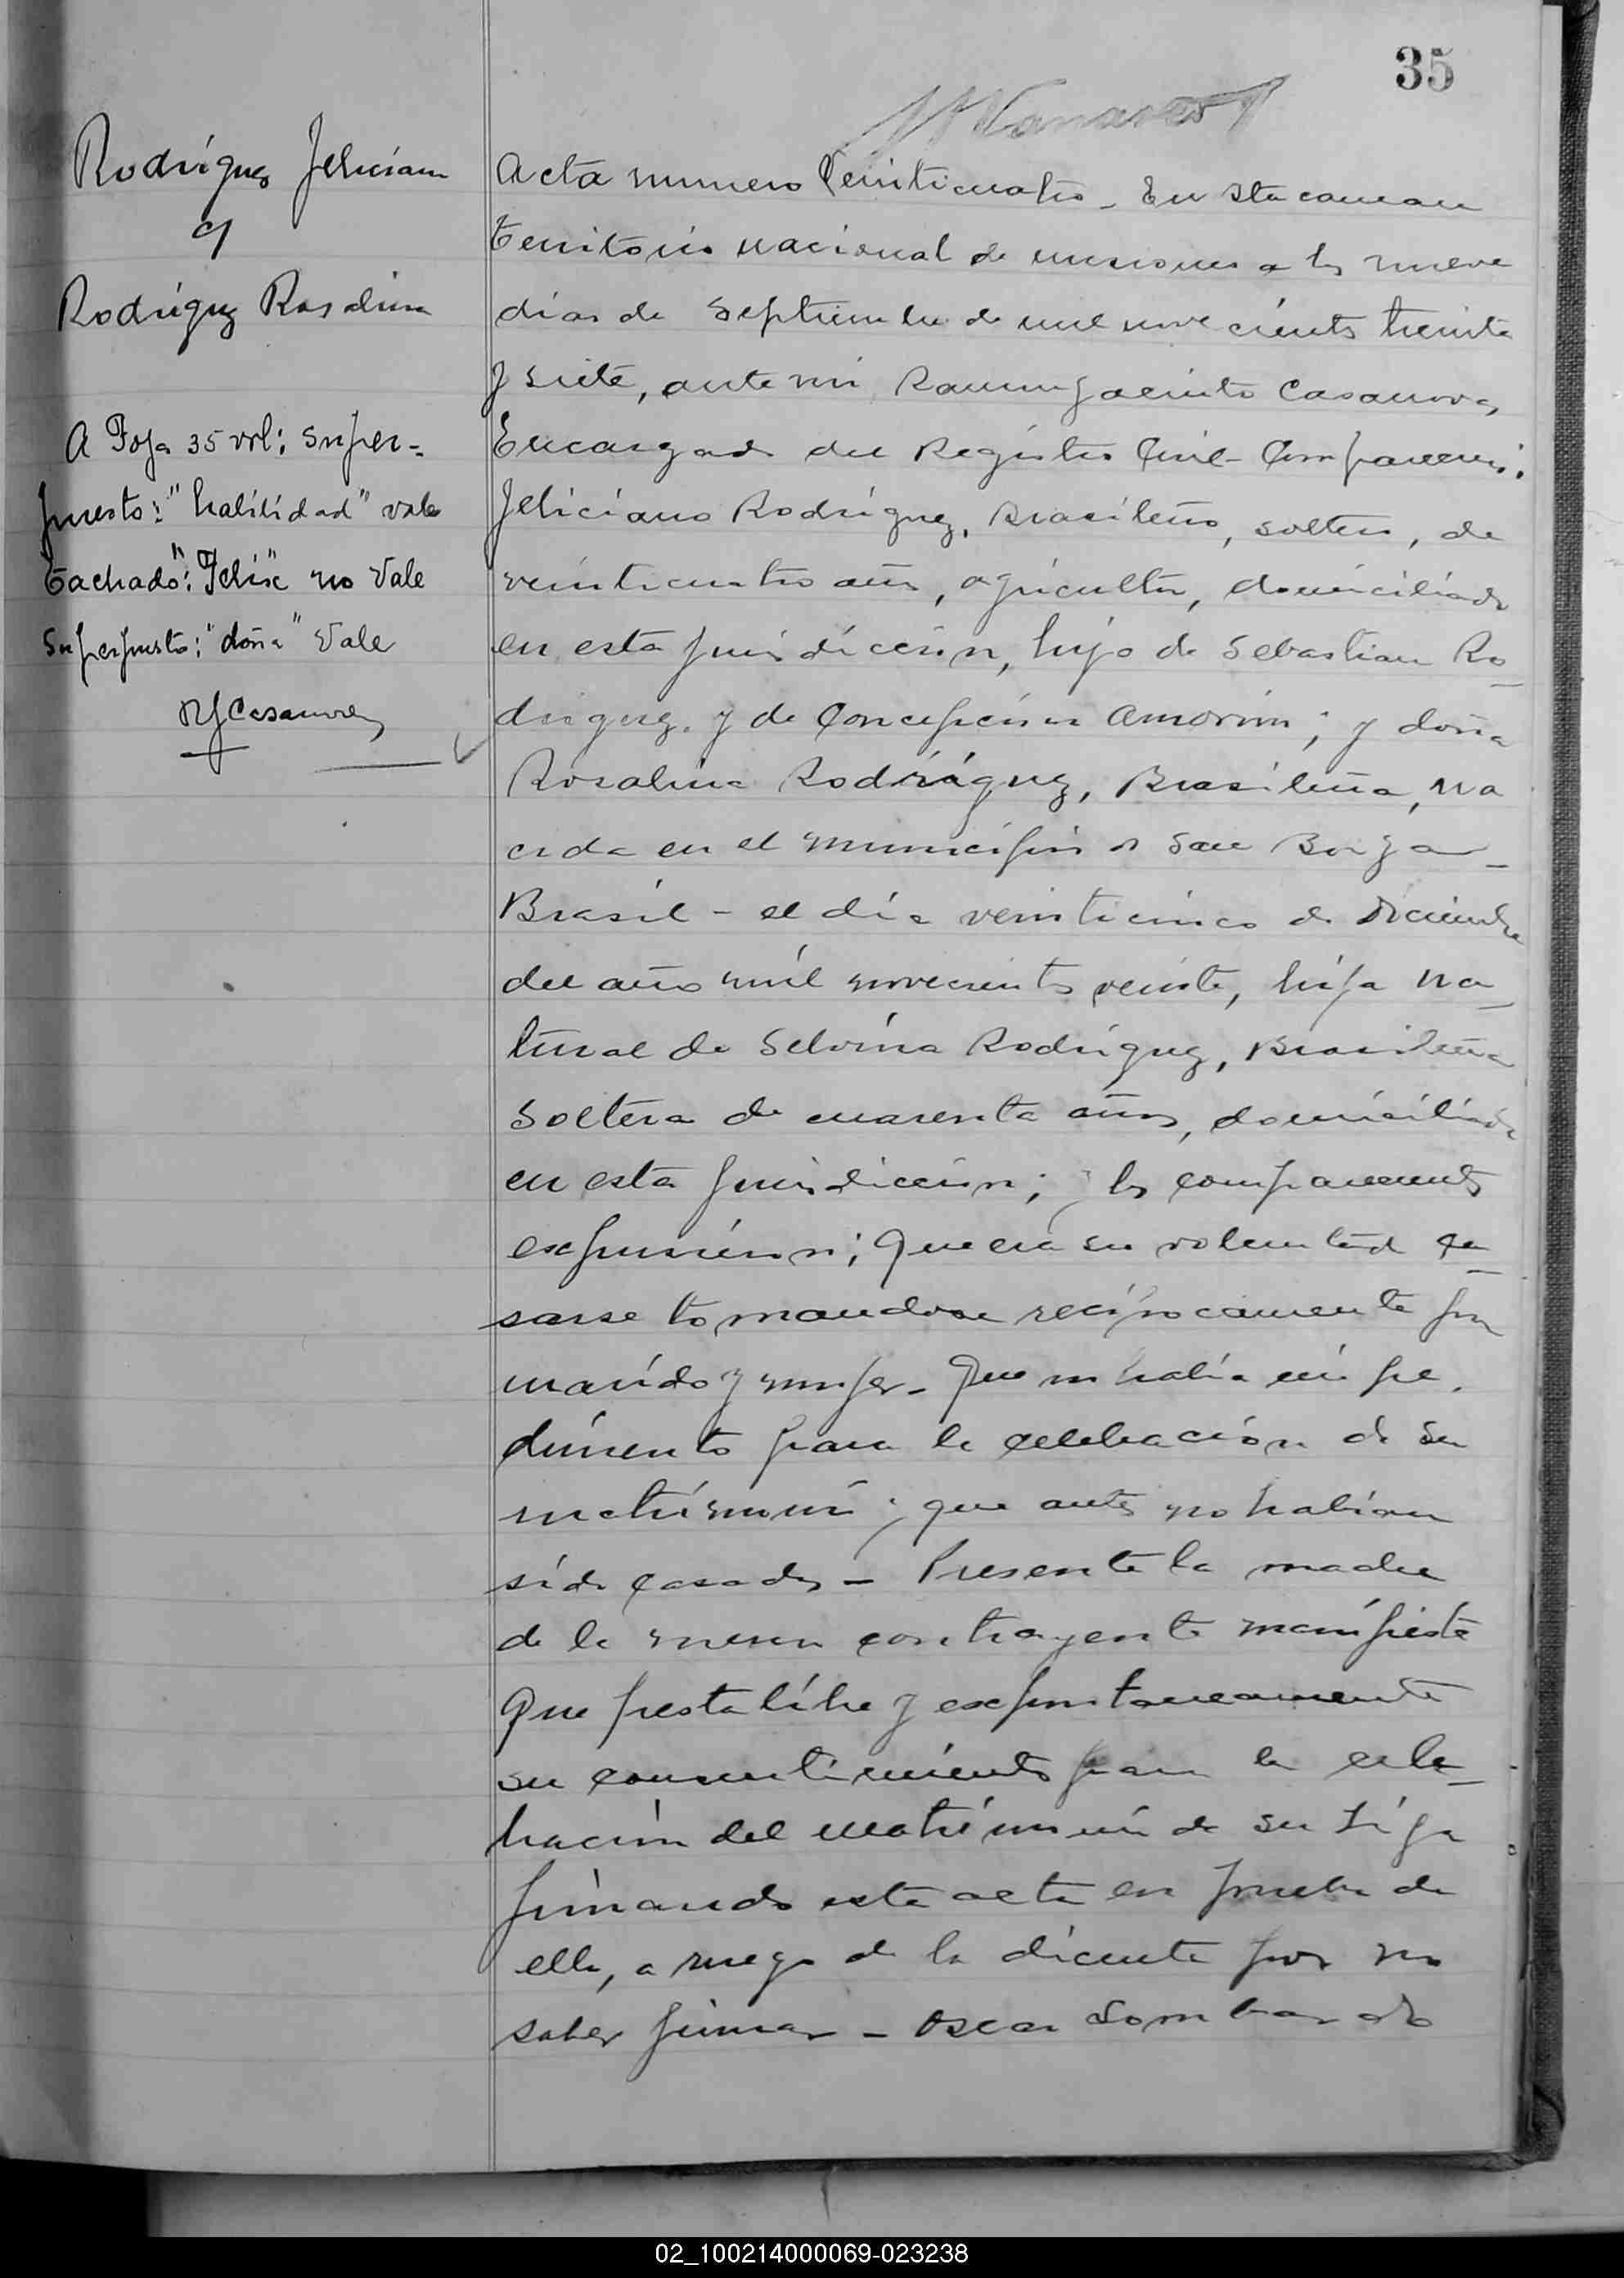 35
Rodríguez Feliciano
c/
Rodríguez Rosalina
A Foja 35 vol: super-
puesto: "habilidad" vale
Tachado: "Felix" no vale
Superpuesto: "doña" Vale
RJCasanova
Acta numero Veinticuatro - En Itacaruare
territorio nacional de misiones a los nueve
días de Septiembre de mil novecientos treinta
y siete, ante mi Ramon Jacinto Casanova,
Encargado del Registro Civil - Comparecen:
Feliciano Rodríguez, Brasileño, soltero, de
veinticuatro años, agricultor, domiciliado
en esta jurisdiccion, hijo de Sebastian Ro-
driguez, y de Concepción Amorim; y doña
Rosalina Rodríguez, Brasileña, na
cida en el municipio de San Borja -
Brasil - el día veinticinco de Diciembre
del año mil novecientos veinte, hija na-
tural de Selvina Rodríguez, Brasileña
Soltera de cuarenta años, domiciliada
en esta jurisdiccion; y los comparecientes
expusieron; Que era su voluntad ca-
sarse tomandose recíprocamente por
marido y mujer - Que no había impe-
dimento para la celebración de su
matrimonio; que antes no habían
sido casados - Presente la madre
de la menor contrayente manifiesta
Que presta libre y expontaneamente
su consentimiento para la cele-
bración del matrimonio de su hija
firmando esta acta en prueba de
ello, a ruego de la dicente por no
saber firmar - Oscar Lombardo
02_100214000069-023238